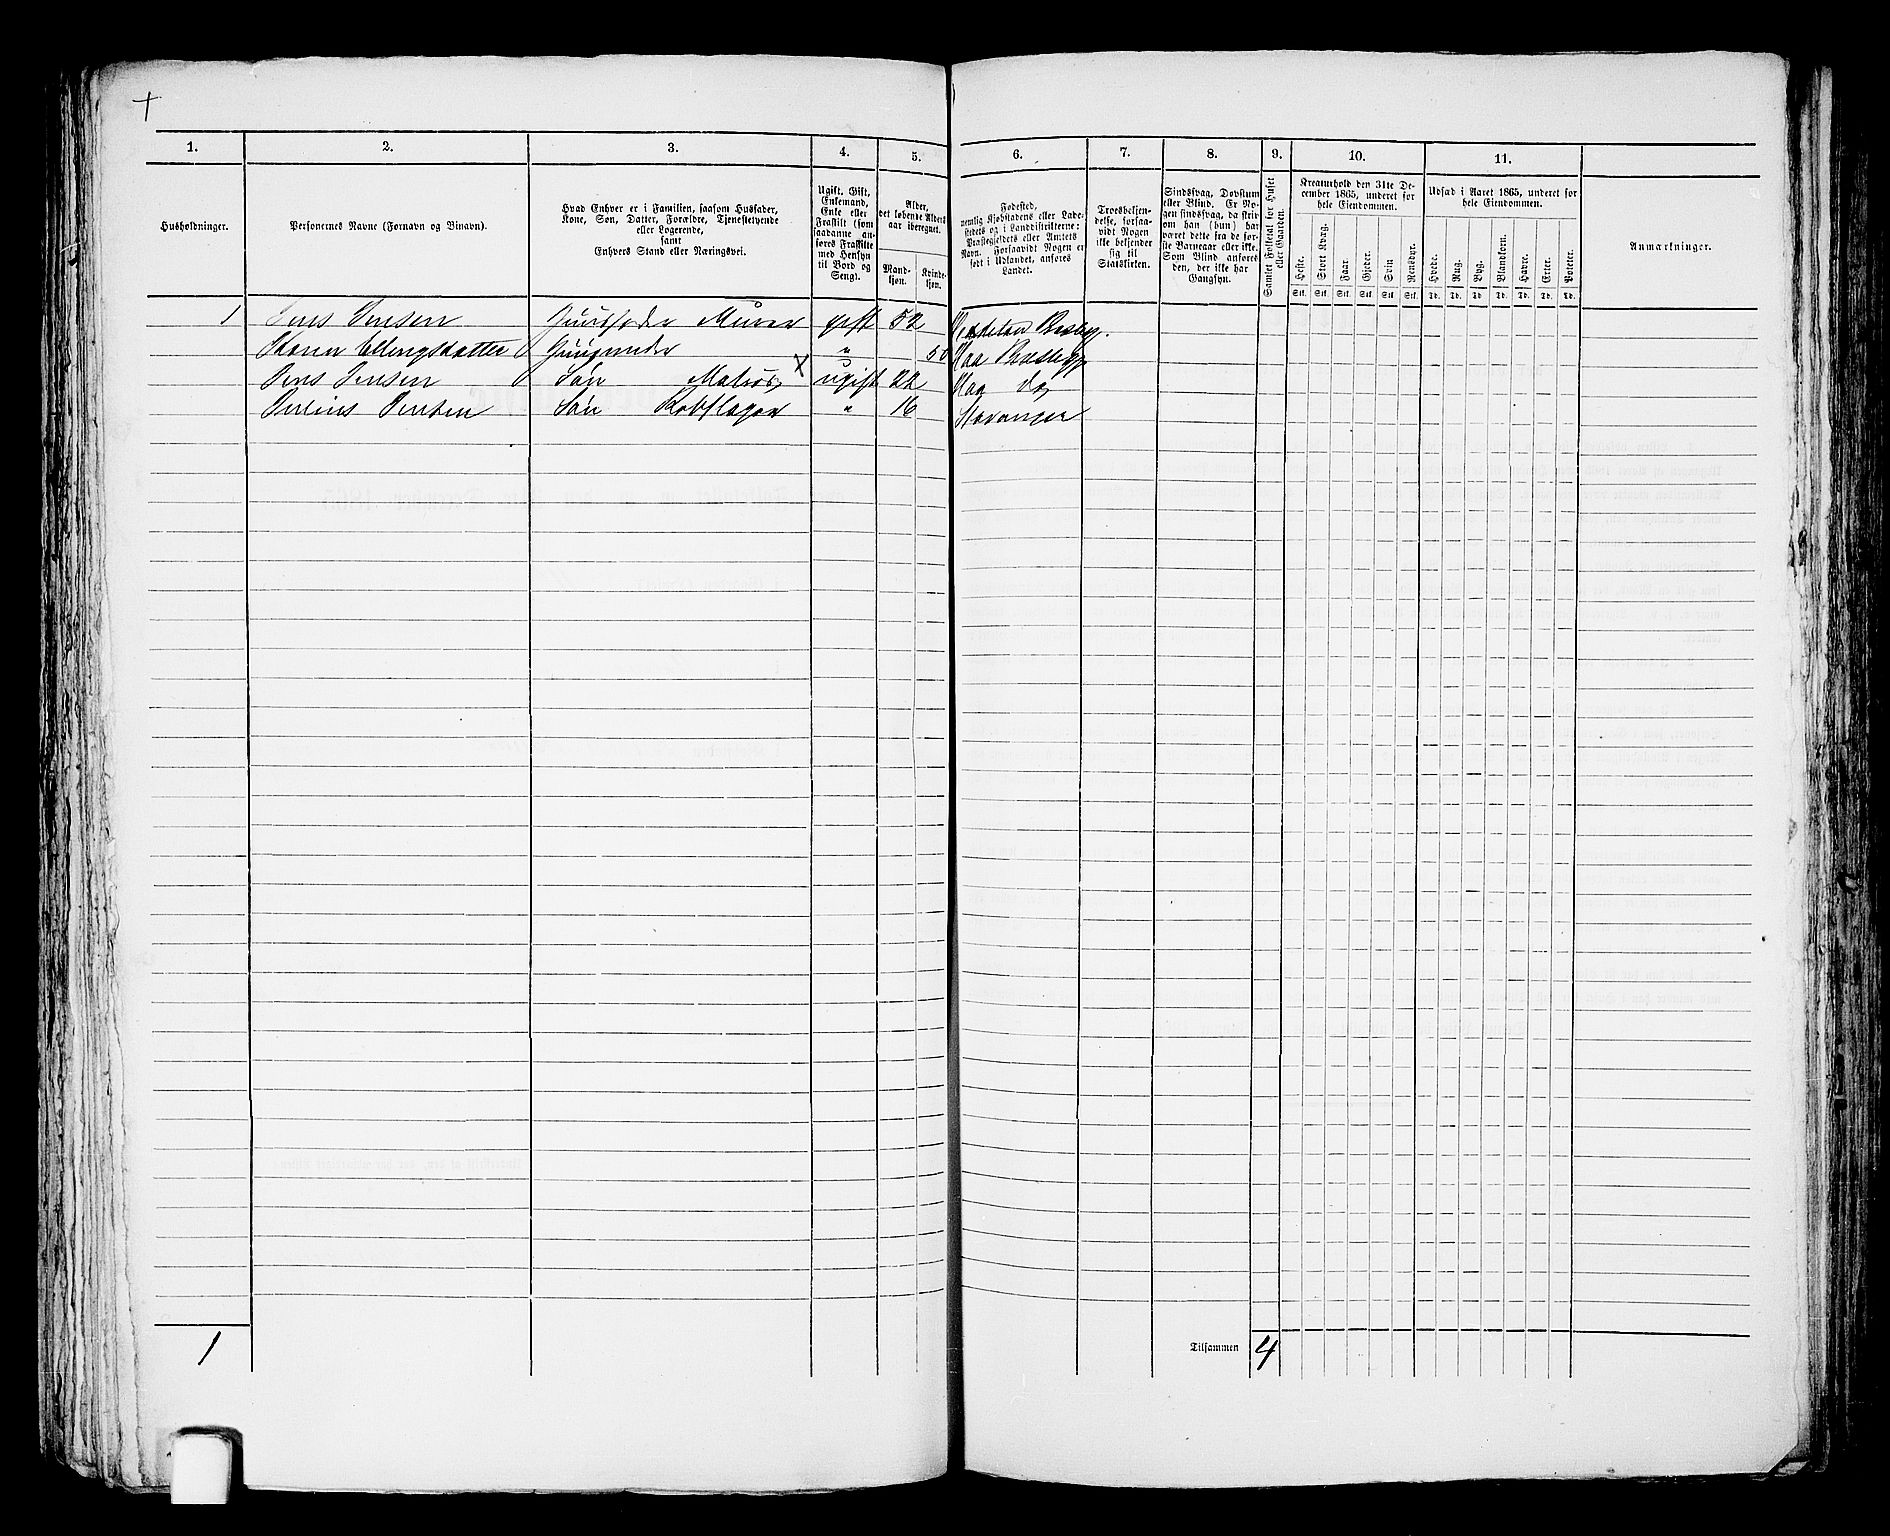 1. 2. 3. 4. 5. 6. 7. 8. 9. 10. 11.
Husholdninger.
Personernes Navne (Fornavn og Binavn).
Hvad Enhver er i Familien, saasom Husfader,
Kone, Søn, Datter, Forældre, Tjenestetyende
eller Logerende,
samt
Enhvers Stand eller Næringsvei.
Ugift, Gift,
Enkemand,
Enke eller
Fraskilt (som
saadanne an-
føres Fraskilte
med Hensyn
til Bord og
Seng).
Alder,
det løbende Alders-
aar iberegnet.
Mand-
kjøn.
Kvinde-
kjøn.
Fødested,
nemlig Kjøbstadens eller Lade-
stedets og i Landdistrikterne:
Præstegjeldets eller Amtets
Navn. Forsaavidt Nogen er
født i Udlandet, anføres
Landet.
Troesbekjen-
delse, forsaa-
vidt Nogen
ikke bekjender
sig til
Statskirken.
Sindssvag, Døvstum
eller Blind. Er No-
gen sindssvag, da skri-
ves om han (hun) har
været dette fra de før-
ste Barneaar eller ikke.
Som Blind anføres
den, der ikke har
Gangsyn.
Samlet Folketal for Huset
eller Gaarden.
Kreaturhold den 31te De-
cember 1865, underet for
hele Eiendommen.
Heste. Stort Kvæg. Faar. Gjeder. Svin Rensdyr.
Stk. Stk. Stk. Stk. Stk. Stk.
Udsæd i Aaret 1865, underet for
hele Eiendommen.
Hvede. Rug. Byg. Blandkorn. Havre. Erter. Poteter.
Td. Td. Td. Td. Td. Td. Td.
Anmærkninger.
1 Jens Jensen Huusfader Murer gift 52
Karen Ellingsdatter Huusmoder " 50 Haa
Jens Jensen Søn Matros ugift 22 Haa do
Jensen Søn " 16 Stavanger
1
Tilsammen 4